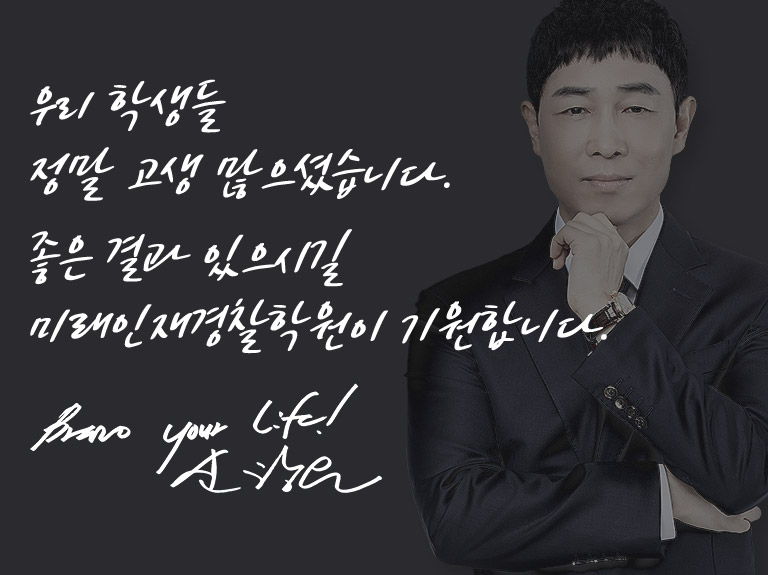 우리 학생들
정말 고생 많으셨습니다.
좋은 결과 있으시길
미래인재경찰학원이 기원합니다.
Bravo your Life!